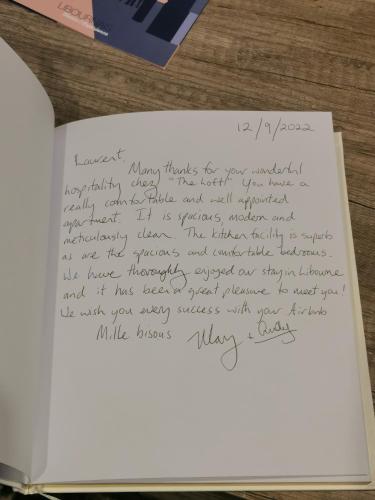 LIBOURNAIS
12/9/2022
Laurent,
Many thanks for your wonderful
hospitality chez "The Loft". You have a
really comfortable and well appointed
apartment. It is spacious, modern and
meticulously clean. The kitchen facility is superb
as are the spacious and comfortable bedrooms.
We have thoroughly enjoyed our stay in Libourne
and it has been a great pleasure to meet you!
We wish you every success with your Airbnb
Mille bisous May +